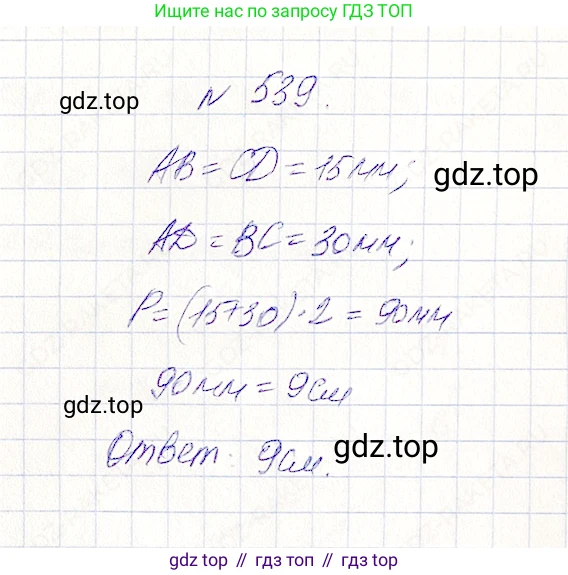 Ищите по запросу ГДЗ ТОП
gdz.top
N 539.
AB = CD = 15мм;
gdz.top
AD = BC = 30мм;
P = (15+30)·2 = 90мм
90мм = 9см
gdz.top
Ответ: 9см.
gdz.top
gdz.top // гдз топ // гдз.топ